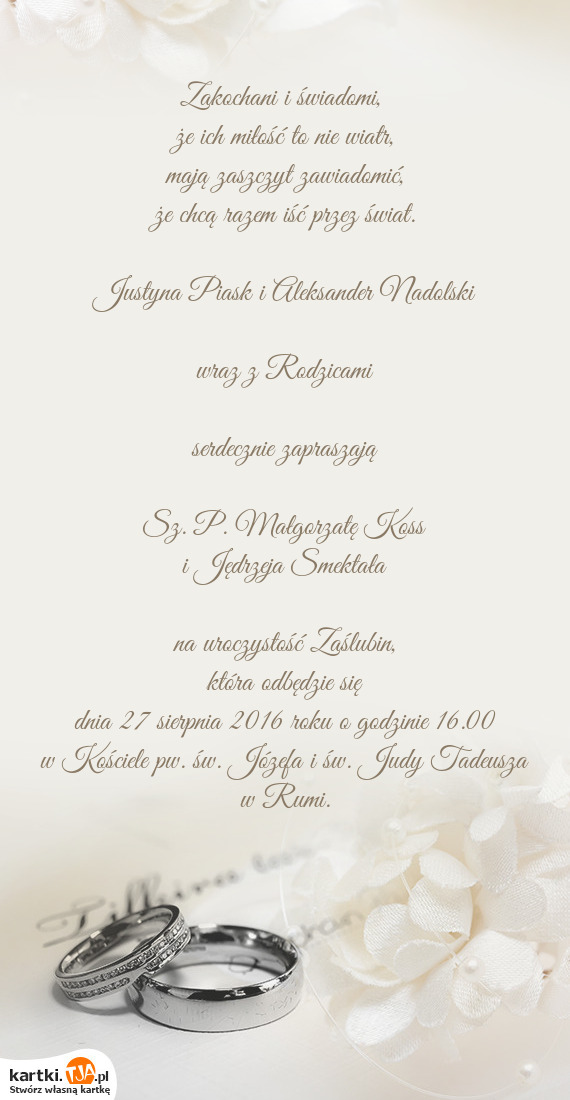 Zakochani i świadomi,
że ich miłość to nie wiatr,
mają zaszczyt zawiadomić,
że chcą razem iść przez świat.
Justyna Piask i Aleksander Nadolski
wraz z Rodzicami
serdecznie zapraszają
Sz. P. Małgorzatę Koss
i Jędrzeja Smektała
na uroczystość Zaślubin,
która odbędzie się
dnia 27 sierpnia 2016 roku o godzinie 16.00
w Kościele pw. św. Józefa i św. Judy Tadeusza
w Rumi.
kartki.TJA.pl
Stwórz własną kartkę